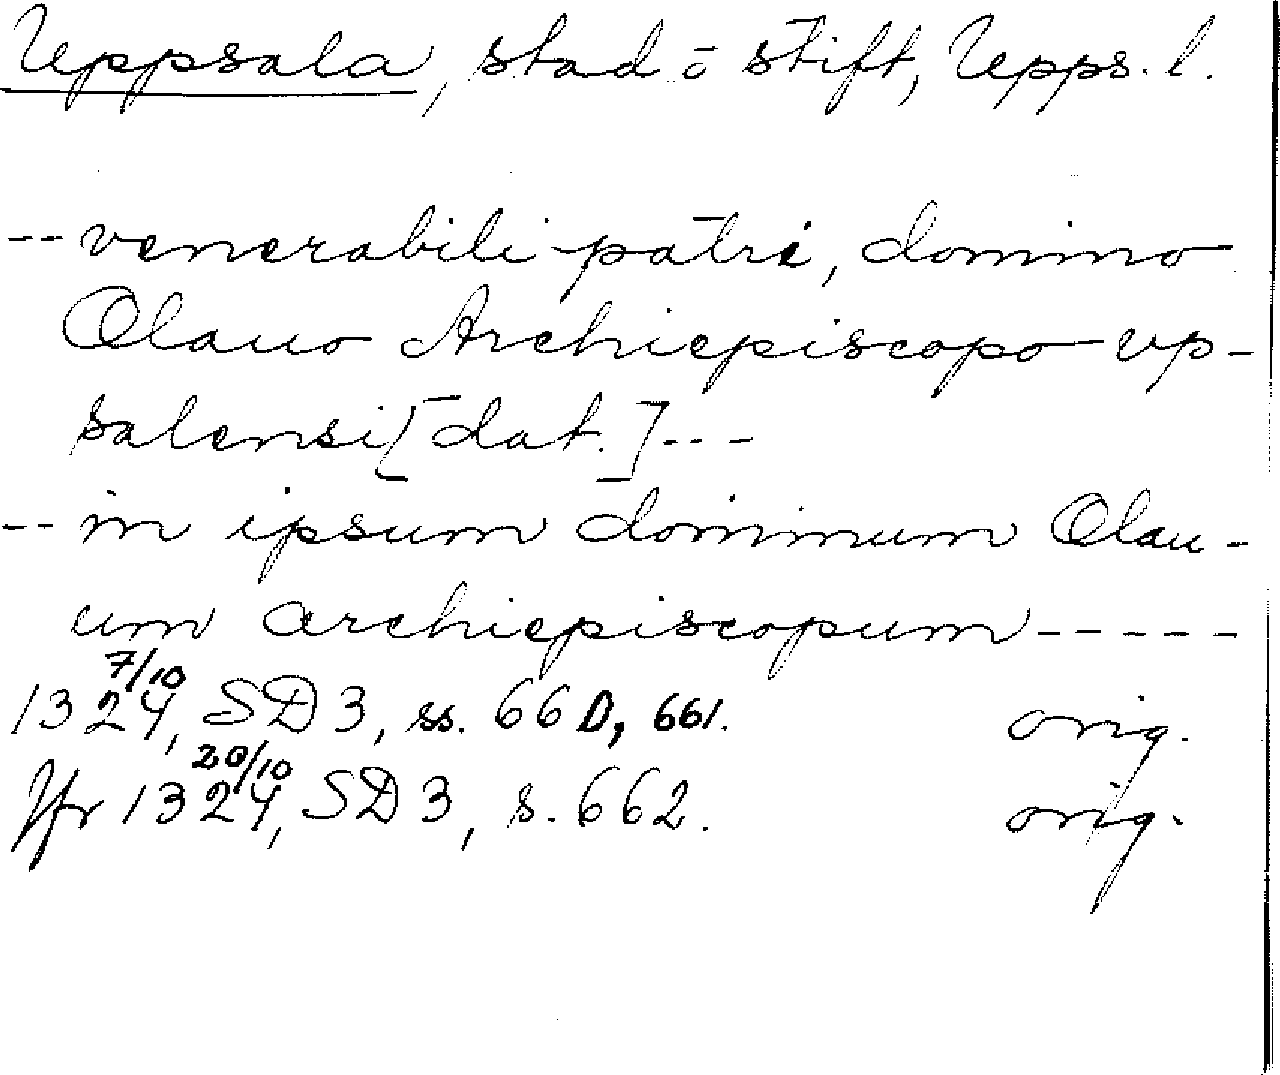 Uppsala, stad o stift, Upps. l.
-- venerabili patri, domino
Olauo Archiepiscopo vp-
salensi [dat.] ---
-- in ipsum dominum Olau-
um archiepiscopum -----
1324 7/10, SD 3, ss. 660, 661. orig.
Jfr 1324 20/10, SD 3, s. 662. orig.